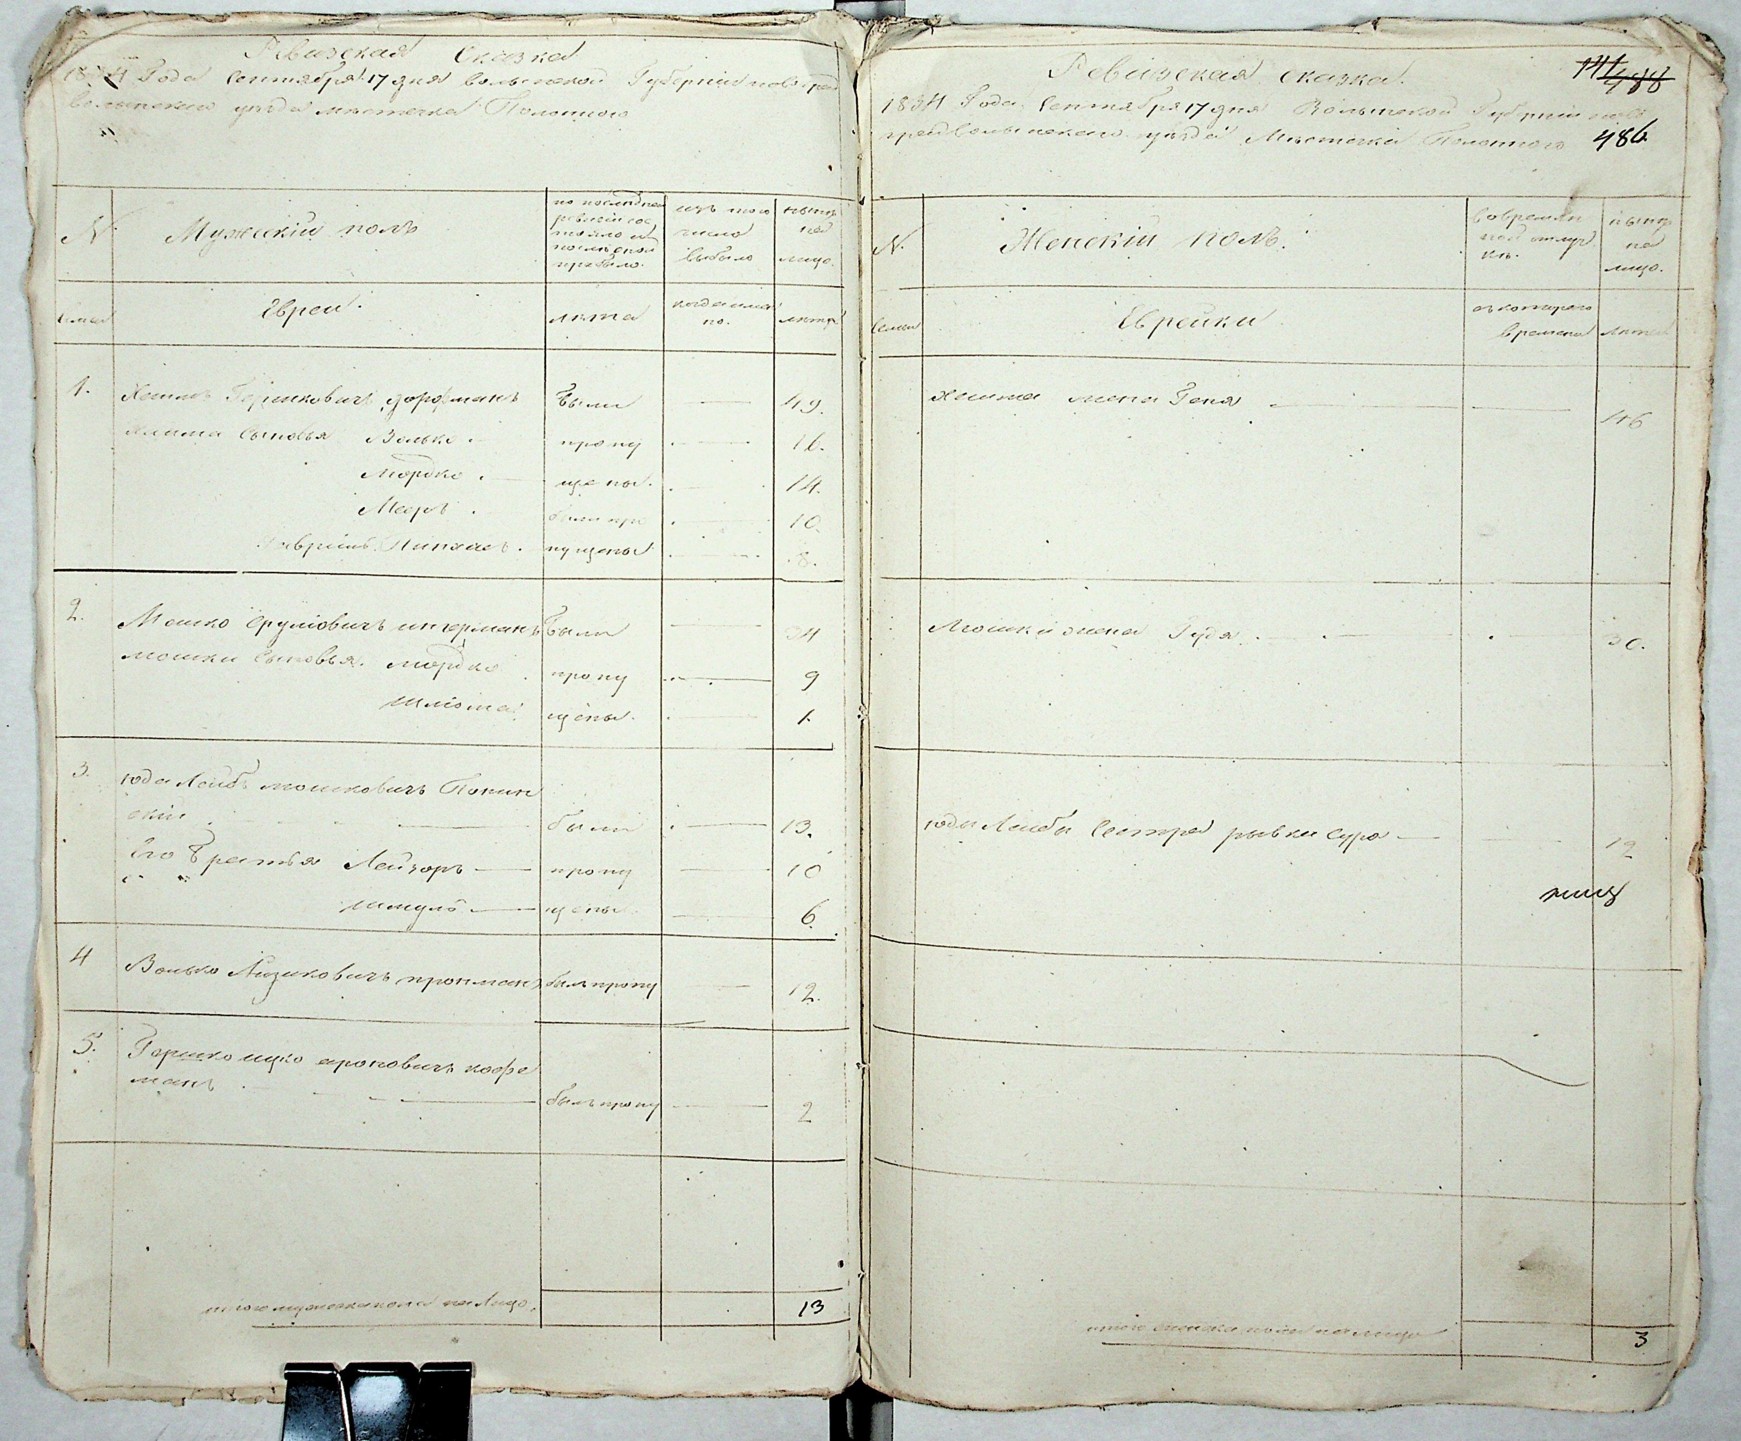 Ревизская Сказка
1834 Года Сентября 17 дня волынской Губернии новоград
волынского уезда местечка Полонного
N.
Мужескій полъ
по последней
ревизіи сос
тояло и
после оной
прибыло.
изъ того
числа
выбыло
ныне
на
лицо.
Евреи.
лета
когда имян
но.
лета
1.
Гершковичъ дорфманъ
были
49.
сыновья Волько
пропу
16.
Мордко
щены.
14.
Мееръ
были про
10.
пущены
8.
2.
Мошко Сруліовичъ ингерманъ
были
34
мошки сыновья. мордко
пропу
9
Шліома
щены.
1.
3.
юда Лейбъ мошковичъ Понин
скій
были
13.
Его Братья Лейзоръ
пропу
10
шмуль
щены
6
4
Волько Айзиковичъ пронманъ
былъ пропу
12.
5.
Гершко ицко ароновичъ кофе
манъ
былъ пропу
2
итого мужеска пола на Лицо.
13
Ревизская сказка.
1834 Года Сентября 17 дня Волынской Губерніи ново
градволынского уезда Местечка Полонного
486
N.
Женскій полъ.
во времян
ной отлуч
ке.
ныне
на
лицо.
Семьи
Еврейки
съ которого
времени
лета
жена Геня
46
Мошки жена Гудя
30.
юды Лейбы Сестра рывки сура
12
итого женска пола на лицо
3